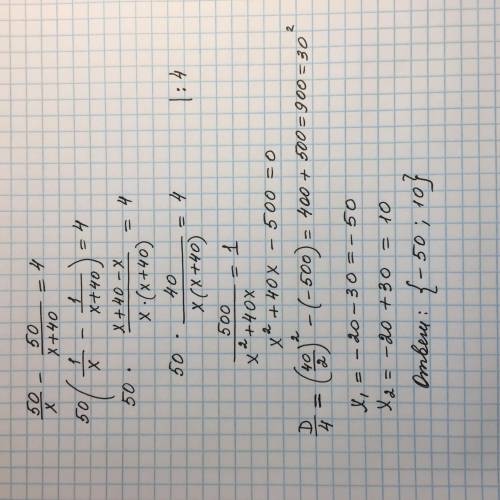 50/x - 50/(x+40) = 4
50(1/x - 1/(x+40)) = 4
50 · (x+40-x)/(x·(x+40)) = 4
50 · 40/(x(x+40)) = 4 |:4
500/(x²+40x) = 1
x²+40x-500=0
D/4 = (40/2)² - (-500) = 400+500=900=30²
x₁ = -20-30 = -50
x₂ = -20+30 = 10
Ответ: {-50; 10}